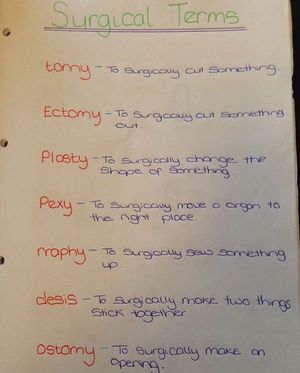 Surgical Terms
tomy - To surgically cut something.
Ectomy - To surgically cut something
out.
Plasty - To surgically change the
shape of something.
Pexy - To surgically move a organ to
the right place.
rraphy - To surgically sew something
up.
desis - To surgically make two things
stick together
ostomy - To surgically make an
opening.